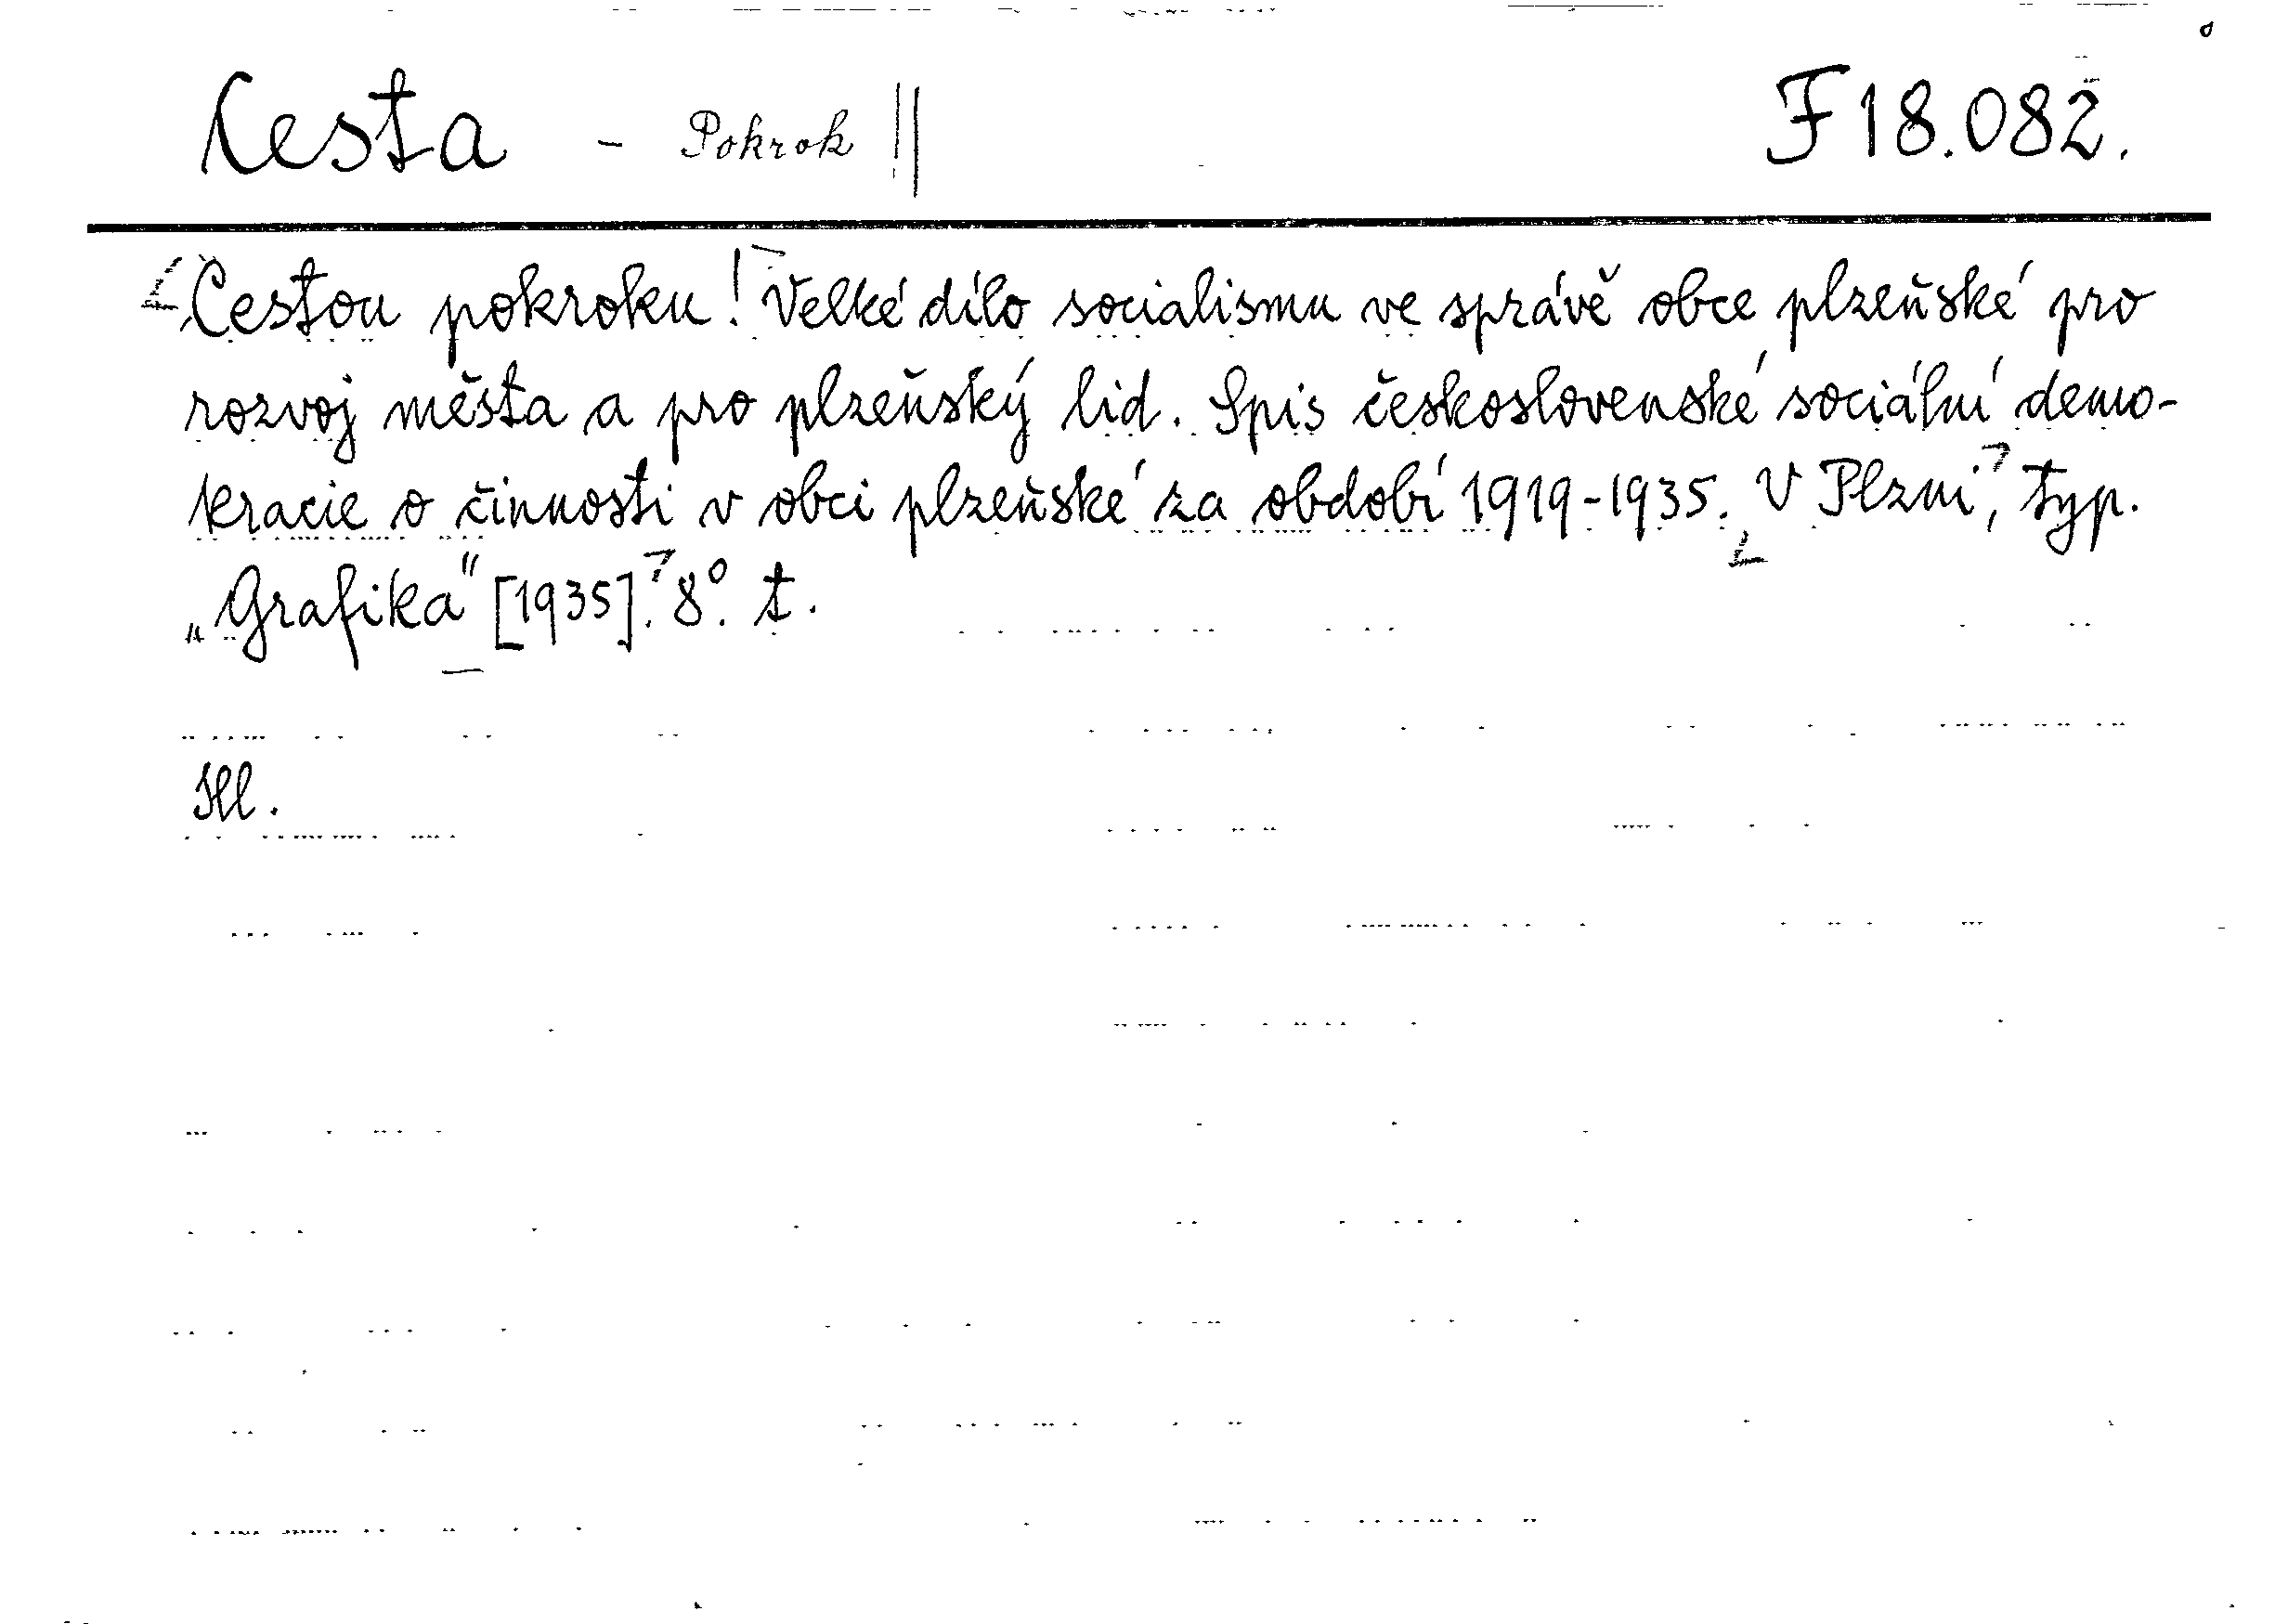 Cesta - Pokrok || F 18.082.
Cestou pokroku! Velké dílo socialismu ve správě obce plzeňské pro
rozvoj města a pro plzeňský lid. Spis československé sociální demo-
kracie o činnosti v obci plzeňské za období 1919-1935. V Plzni, typ.
„Grafika" [1935]. 8°. t.
Ill.